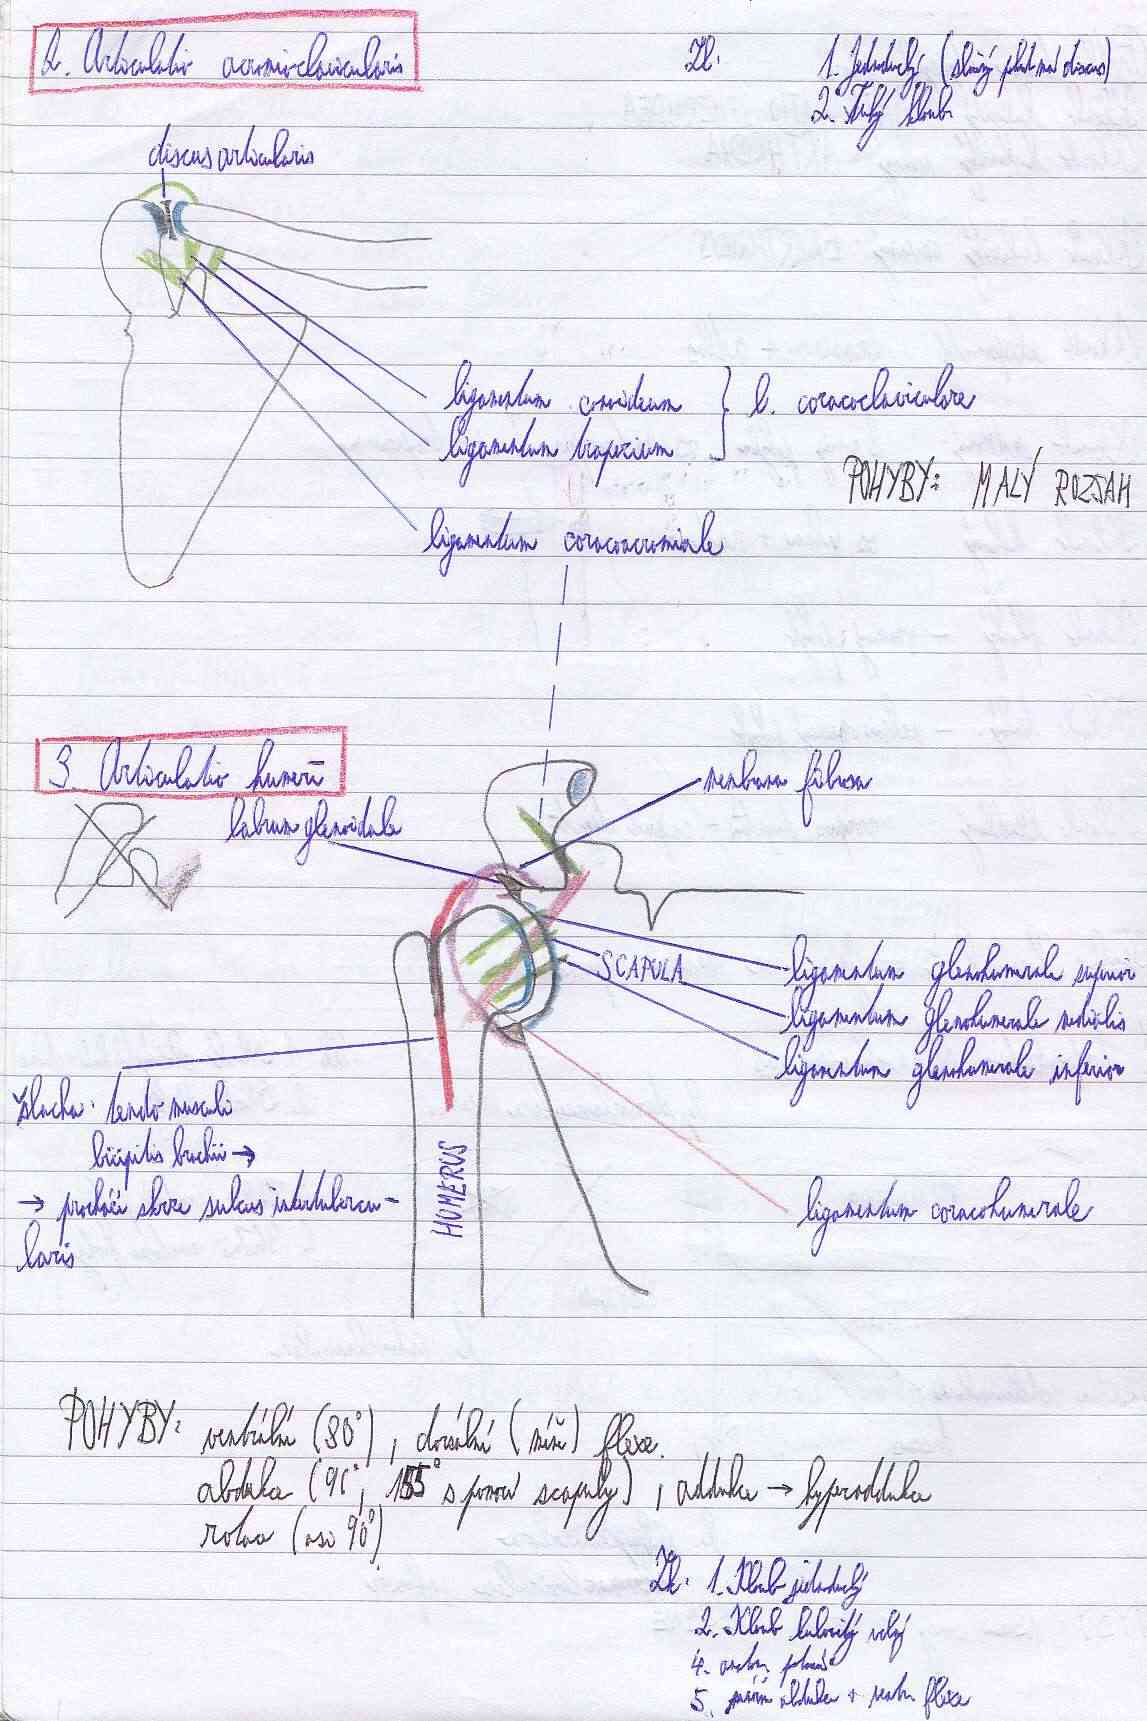 2. Articulatio acromioclavicularis
Zk: 1. Jednoduchý (slivý plat má discus)
2. Tuhý kloub
discus articularis
ligamentum conoideum } l. coracoclaviculare
ligamentum trapezium
POHYBY: MALÝ ROZSAH
ligamentum coracoacromiale
3. Articulatio humeri
membrana fibrosa
labrum glenoidale
SCAPULA
ligamentum glenohumerale superior
ligamentum glenohumerale medialis
ligamentum glenohumerale inferior
šlacha: tendo musculi
bicipitis brachii →
→ prochází skrze sulcus intertubercu-
laris
HUMERUS
ligamentum coracohumerale
POHYBY: ventrální (80°), dorsální (méně) flexe.
abdukce (90°, 155° s pomocí scapuly), addukce → hyperaddukce
rotace (aso 90°)
Zk: 1. Kloub jednoduchý
2. Kloub kulovitý volný
4.
5. abdukce + flexe